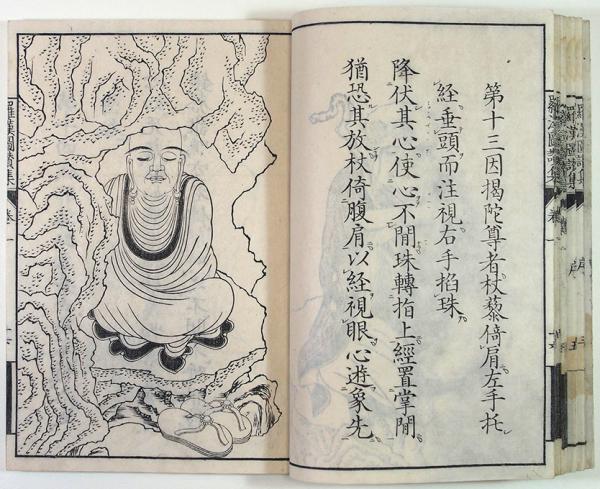 第十三因揭陀尊者杖藜倚肩左手托
経垂頭而注視右手掐珠
降伏其心使心不閒珠轉指上經置掌閒
猶恐其放杖倚腹肩以経視眼心遊象先
羅漢圖讃集 卷一